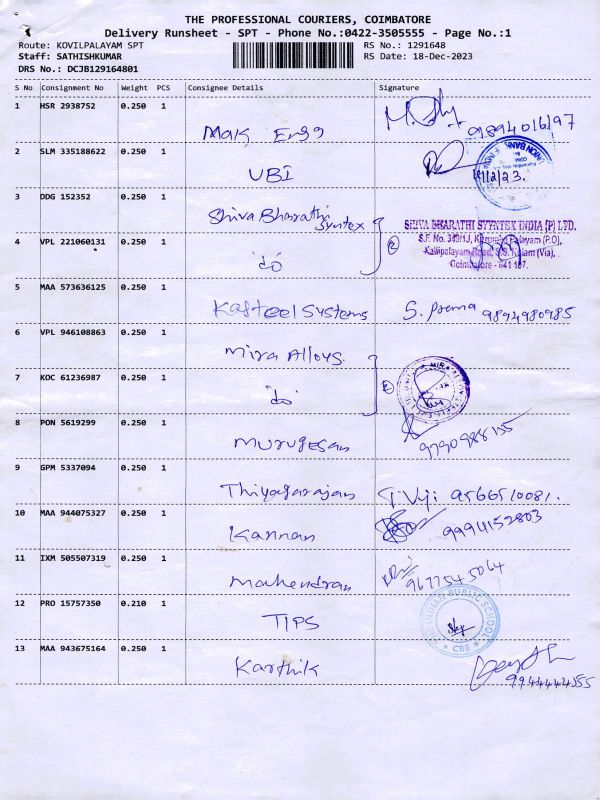 THE PROFESSIONAL COURIERS, COIMBATORE
Delivery Runsheet - SPT - Phone No.:0422-3505555 - Page No.:1
Route: KOVILPALAYAM SPT RS No.: 1291648
Staff: SATHISHKUMAR RS Date: 18-Dec-2023
DRS No.: DCJB129164801
S No Consignment No Weight PCS Consignee Details Signature
1 HSR 2938752 0.250 1
Mak Engg 9894016197
2 SLM 335188622 0.250 1
UBI
3 DDG 152352 0.250 1
Shiva Bharathi Syntex
SHIVA BHARATHI SYNTEX INDIA (P) LTD.
4 VPL 221060131 0.250 1
"do" ②
Coimbatore - 641 107.
5 MAA 573636125 0.250 1
Kasteel Systems S. Prema 9894980985
6 VPL 946108863 0.250 1
Mira Alloys
7 KOC 61236987 0.250 1
"do"
8 PON 5619299 0.250 1
Murugesan
9 GPM 5337094 0.250 1
Thiyagarajan T. Viji 9566510081.
10 MAA 944075327 0.250 1
Kannan 9994152803
11 IXM 505507319 0.250 1
Mahendran 9677545064
12 PRO 15757350 0.210 1
TIPS
THE INDIAN PUBLIC SCHOOL
CBE
13 MAA 943675164 0.250 1
Karthik